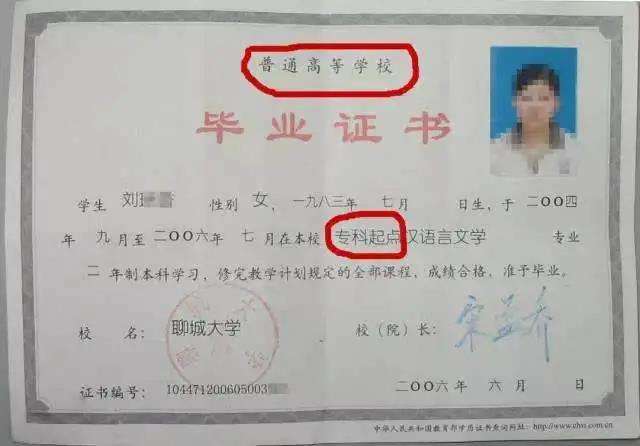 普通高等学校
毕业证书
学生 刘 性别 女，一九八三年 七月 日生，于二〇〇四
年 九月至二〇〇六年 七月在本校 专科起点汉语言文学 专业
二年制本科学习，修完教学计划规定的全部课程，成绩合格，准予毕业。
校 名： 聊城大学 校（院）长：
证书编号： 104471200605003 二〇〇六年 六月 日
中华人民共和国教育部学历证书查询网址：http://www.chsi.com.cn